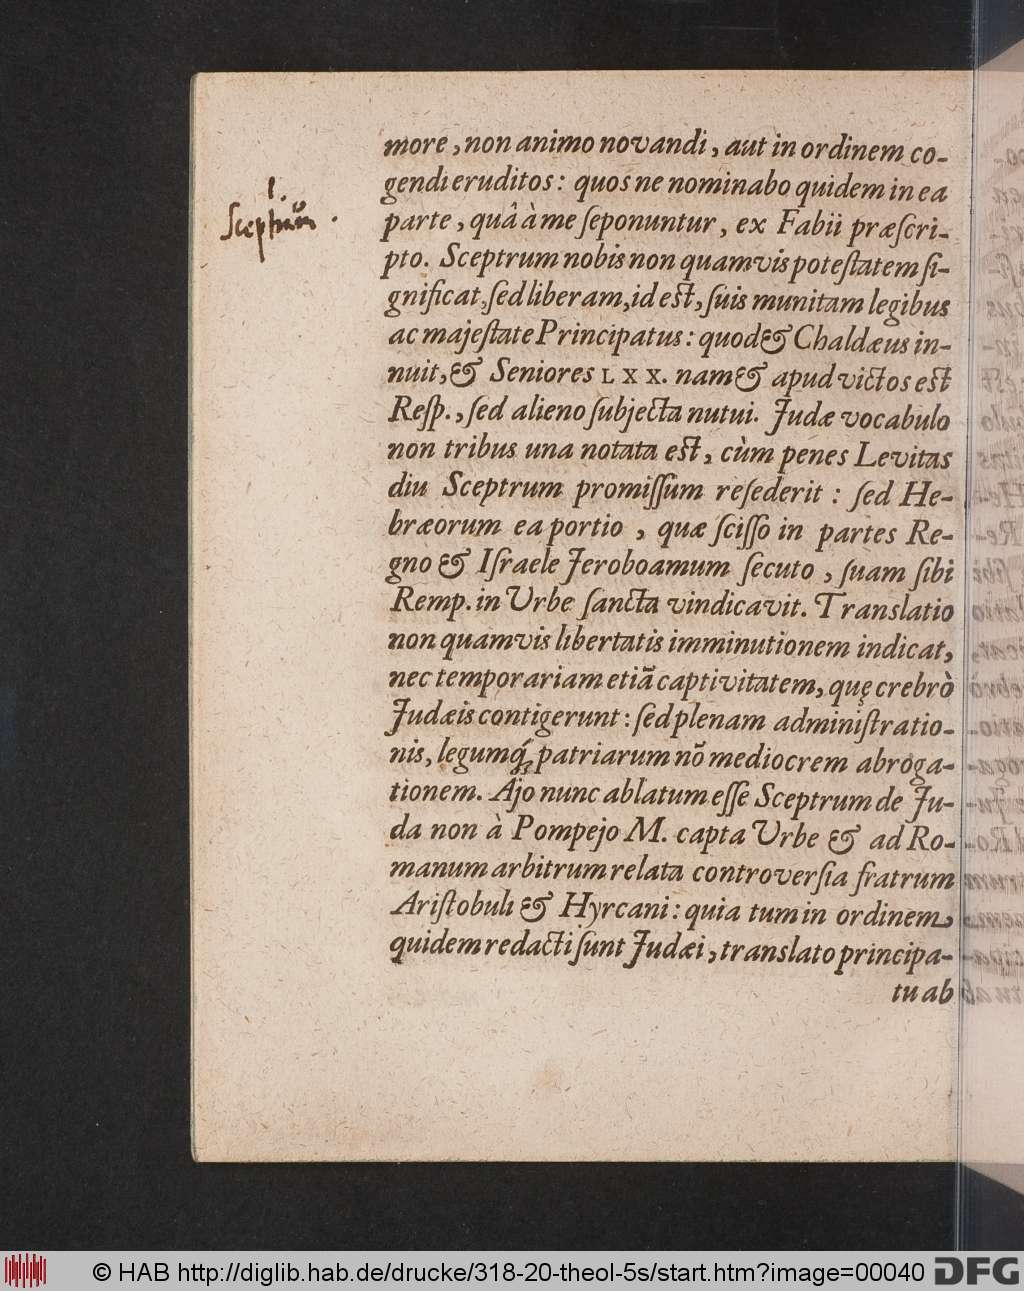 more, non animo novandi, aut in ordinem co-
gendi eruditos: quos ne nominabo quidem in ea
1.
Sceptrum.
parte, quâ à me ſeponuntur, ex Fabii præſcri-
pto. Sceptrum nobis non quamvis poteſtatem ſi-
gnificat, ſed liberam, id eſt, ſuis munitam legibus
ac majeſtate Principatus: quod & Chaldæus in-
nuit, & Seniores LXX. nam & apud victos eſt
Reſp., ſed alieno ſubjecta nutui. Judæ vocabulo
non tribus una notata eſt, cùm penes Levitas
diu Sceptrum promiſſum reſederit: ſed He-
bræorum ea portio, quæ ſciſſo in partes Re-
gno & Iſraele Jeroboamum ſecuto, ſuam ſibi
Remp. in Urbe ſancta vindicavit. Translatio
non quamvis libertatis imminutionem indicat,
nec temporariam etiã captivitatem, quę crebrò
Judæis contigerunt: ſed plenam adminiſtratio-
nis, legumq́; patriarum nõ mediocrem abroga-
tionem. Ajo nunc ablatum eſſe Sceptrum de Ju-
da non à Pompejo M. capta Urbe & ad Ro-
manum arbitrum relata controverſia fratrum
Ariſtobuli & Hyrcani: quia tum in ordinem
quidem redacti ſunt Judæi, translato principa-
tu ab
© HAB http://diglib.hab.de/drucke/318-20-theol-5s/start.htm?image=00040
DFG